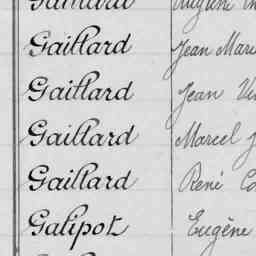 Gaillard
Gaillard Jean
Gaillard Jean
Gaillard Marcel
Gaillard René
Galipot Eugène